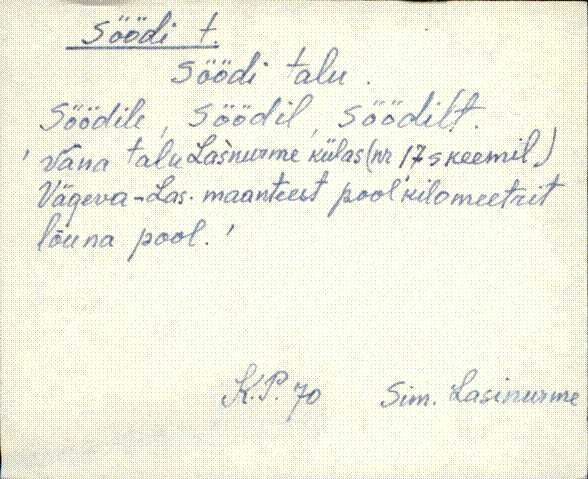 Söödi t.
Söödi talu.
Söödile, söödil, söödilt.
' Vana talu Lasnurme külas (nr 17 skeemil)
Vägeva-Las. maanteest pool kilomeetrit
lõuna pool.'
K.P. 70 Sim. Lasinurme